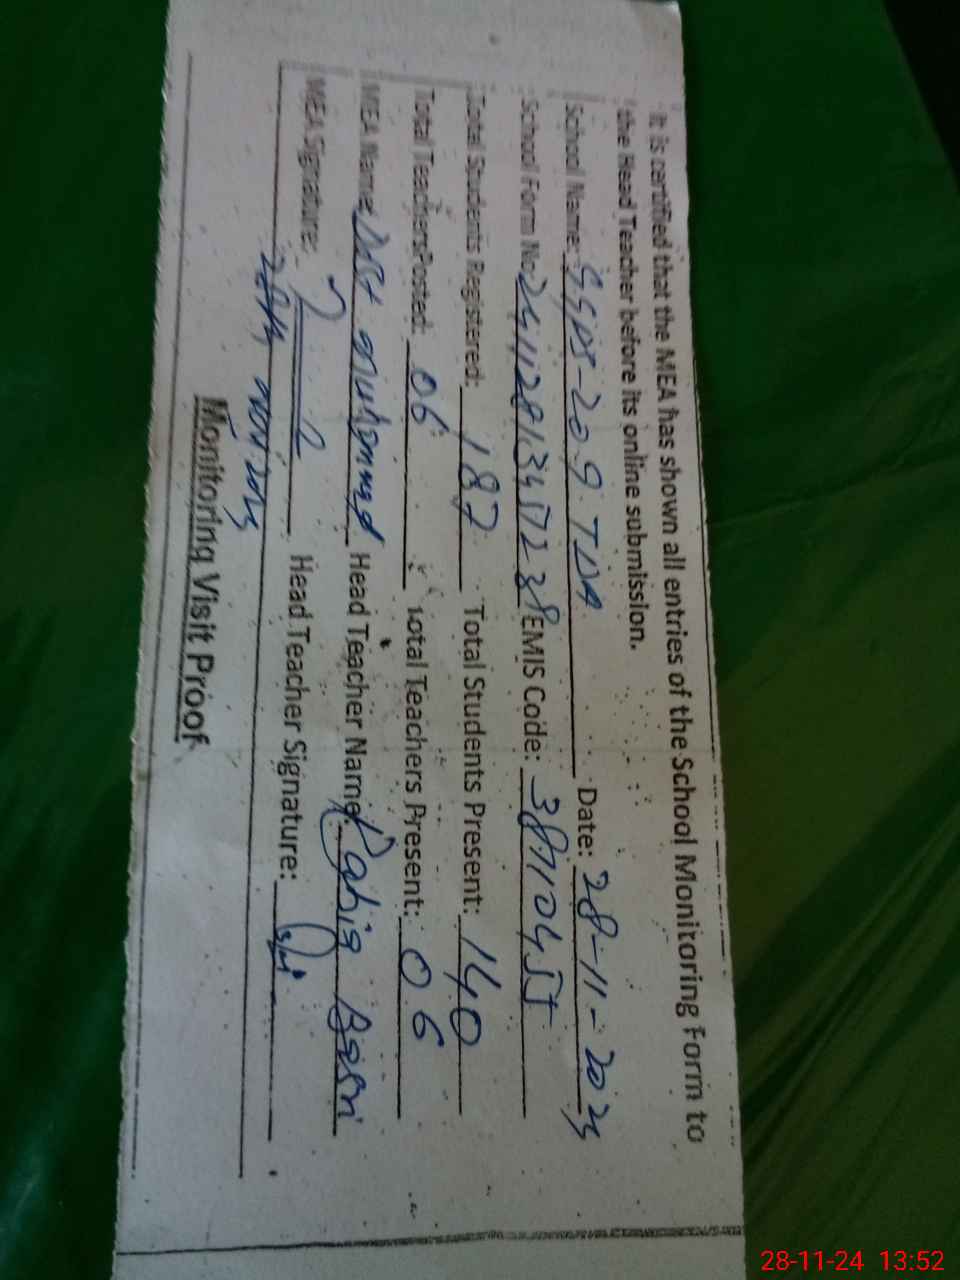 Monitoring Visit Proof
It is certified that the MEA has shown all entries of the School Monitoring Form to
the Head Teacher before its online submission.
School Name: GGPS-209 TDA Date: 28-11-2024
School Form No: EMIS Code:
Total Students Registered: 187 Total Students Present: 140
Total Teachers Posted: 06 Total Teachers Present: 06
MEA Name: Muhammad Head Teacher Name: Rabia
MEA Signature: Head Teacher Signature:
28-11-24 13:52